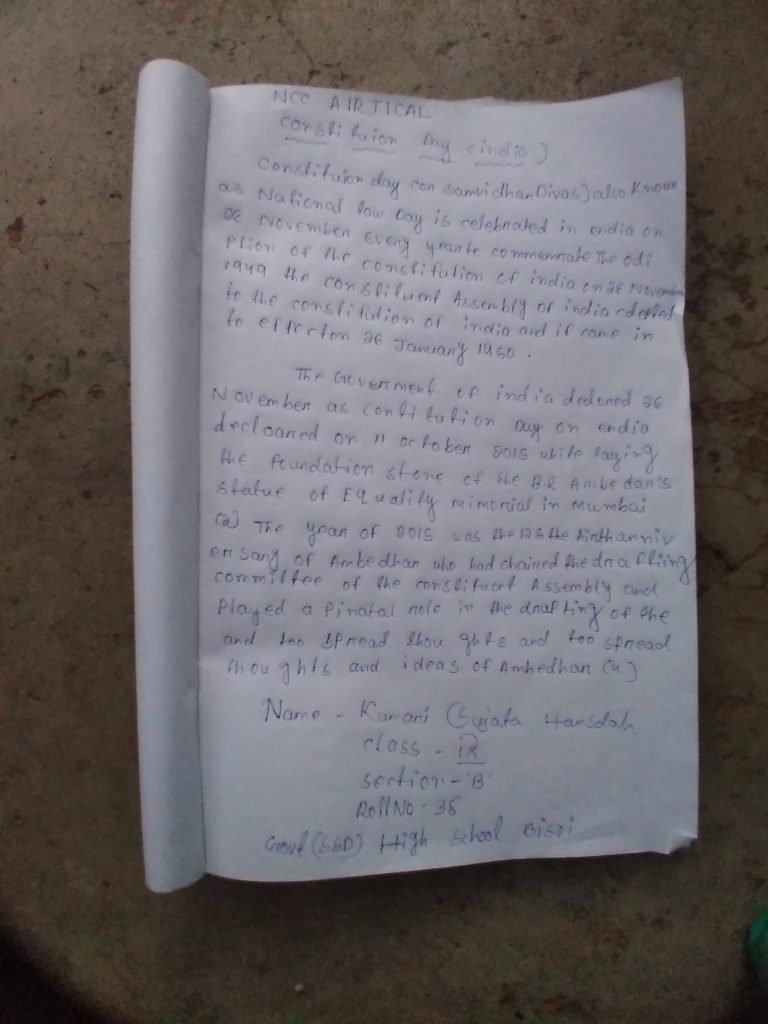 NCC AIRTICAL
Constituion Day (india)
Constituion day (on samvidhan Divas) also Known
as National low Day is celebrated in endia on
26 November every yearto commemnate The odi
ption of the constitution of india on 26 November
1949 the constituent Assembly of india
to the constitidion of india and it came in
to effecton 26 January 1950.
The Goverment of india 26
November as contitution Day on endia
decloaned on 11 october 2015 while laying
the foundation stone of the B.R Ambedan's
statue of Equality mimorial in Mumbai
The year of 2015 was the 125 the birthanniv
ensany of Ambedhan who had chained the drafting
committee of the constituent Assembly and
Played a Pivatal role in the drafting of the
and too spread thoughts and too spread
thoughts and ideas of Ambedhan (4)
Name - Kumari (Sujata Hansdah
class - IX
section - 'B'
Roll No - 38
Govt (SSD) High School Bisoi